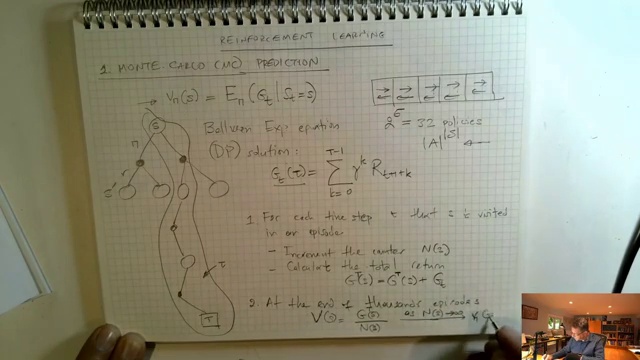 REINFORCEMENT LEARNING
1. MONTE CARLO (MC) PREDICTION
→ Vπ(s) = Eπ(Gt | St=s)
2^5 = 32 policies
|A|^|S| ←
S
π
r
s'
τ
T
Bellman Exp equation
(DP) solution:
Gt(τ) = Σ_{k=0}^{T-1} γ^k R_{t+1+k}
1. For each time step t that s is visited
in an episode
- Increment the counter N(s)
- Calculate the total return
G^T(s) = G^T(s) + Gt
2. At the end of thousands episodes
V(s) = G(s)/N(s) as N(s)→∞